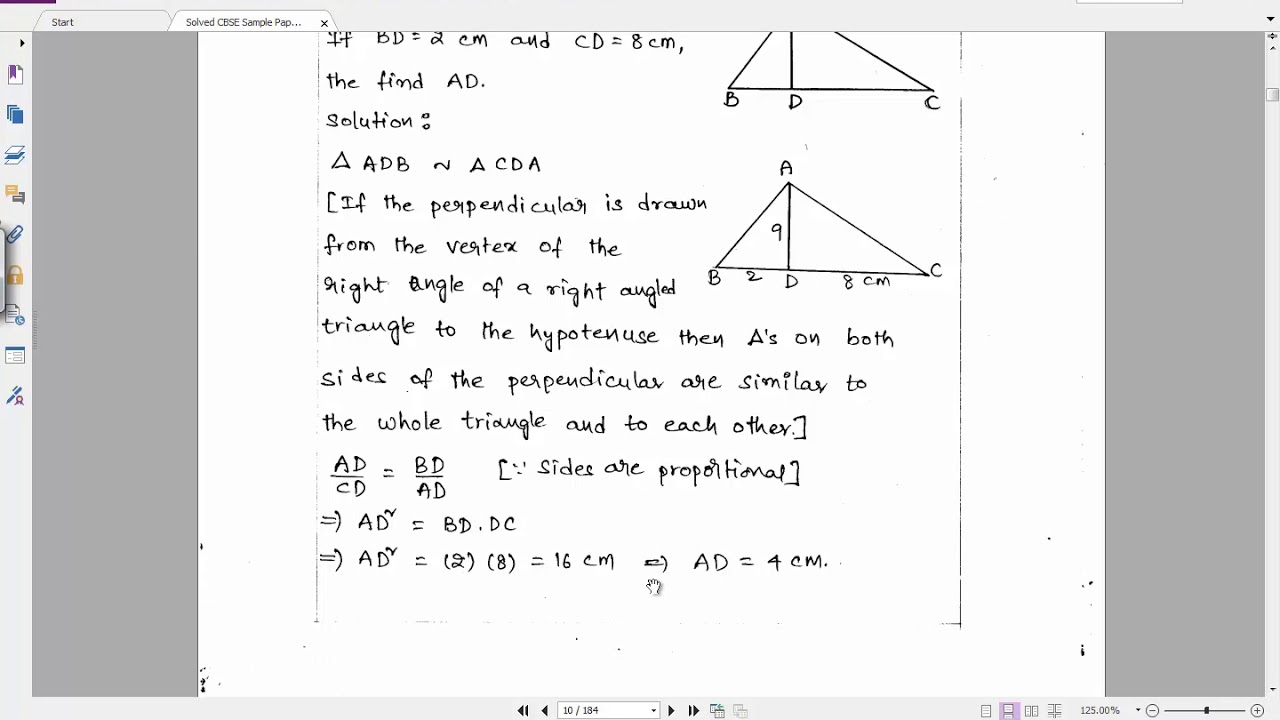 Start
Solved CBSE Sample Pap...
If BD = 2 cm and CD = 8 cm,
the find AD.
B D C
Solution :
△ ADB ~ △ CDA
[If the perpendicular is drawn
from the vertex of the
right angle of a right angled
triangle to the hypotenuse then Δ's on both
sides of the perpendicular are similar to
the whole triangle and to each other.]
A
9
B 2 D 8 cm C
AD/CD = BD/AD [∵ sides are proportional]
⇒ AD² = BD . DC
⇒ AD² = (2) (8) = 16 cm ⇒ AD = 4 cm.
10 / 184
125.00%